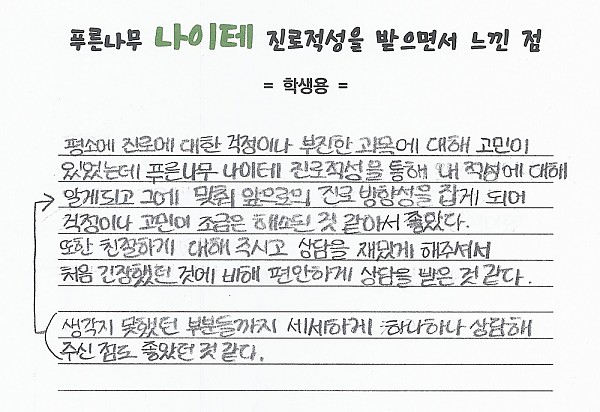 푸른나무 나이테 진로적성을 받으면서 느낀 점
= 학생용 =
평소에 진로에 대한 걱정이나 부진한 과목에 대해 고민이
있었는데 푸른나무 나이테 진로적성을 통해 내 적성에 대해
알게되고 그에 맞춰 앞으로의 진로 방향성을 잡게 되어
걱정이나 고민이 조금은 해소된 것 같아서 좋았다.
또한 친절하게 대해 주시고 상담을 재밌게 해주셔서
처음 긴장했던 것에 비해 편안하게 상담을 받은 것 같다.
생각지 못했던 부분들까지 세세하게 하나하나 상담해
주신 점도 좋았던 것 같다.